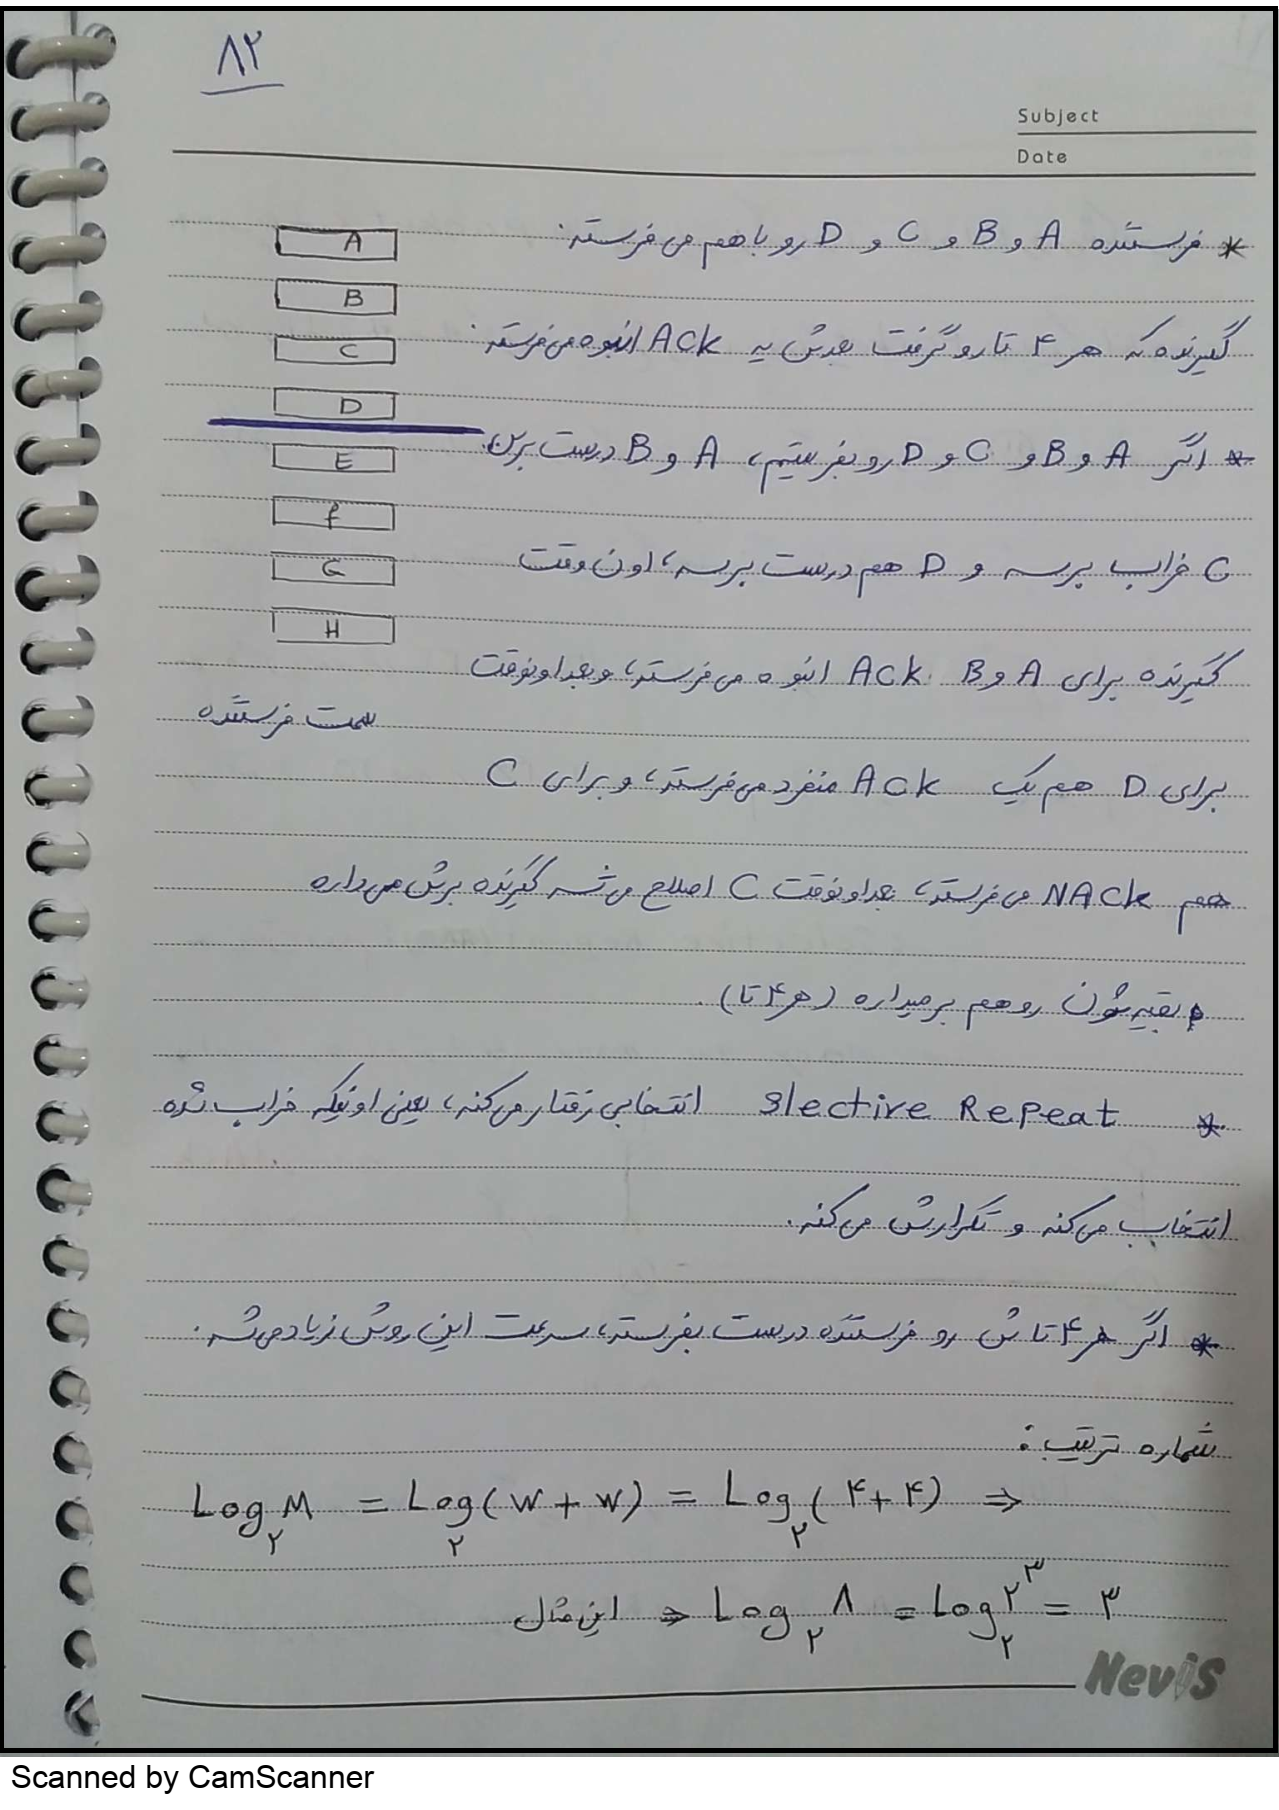 ۸۲
Subject
Date
* فرستنده A و B و C و D رو با هم می فرسته.
A
B
گیرنده که هر ۴ تا رو گرفت بعدش یه Ack انبوه می فرسته.
C
D
* اگر A و B و C و D رو بفرستیم، A و B درست برسن
E
f
C خراب برسه و D هم درست برسه، اون وقت
G
H
گیرنده برای A و B Ack انبوه می فرسته، و بعد اونوقت
سمت فرستنده
برای D هم یک Ack منفرد می فرسته، و برای C
هم NAck می فرسته، بعد اونوقت C اصلاح می شه گیرنده برش می داره
بقیه شون رو هم برمیداره (هر ۴ تا).
* Slective Repeat انتخابی رفتار می کنه، یعنی اونیکه خراب شده
انتخاب می کنه و تکرارش می کنه.
* اگر هر ۴ تا ش رو فرستنده درست بفرسته، سرعت این روش زیاد می شه.
شماره ترتیب :
Log₂M = Log₂(W + W) = Log₂(۴+۴) ⇒
این مثال ⇒ Log₂۸ = Log₂۲^۳ = ۳
Nevis
Scanned by CamScanner